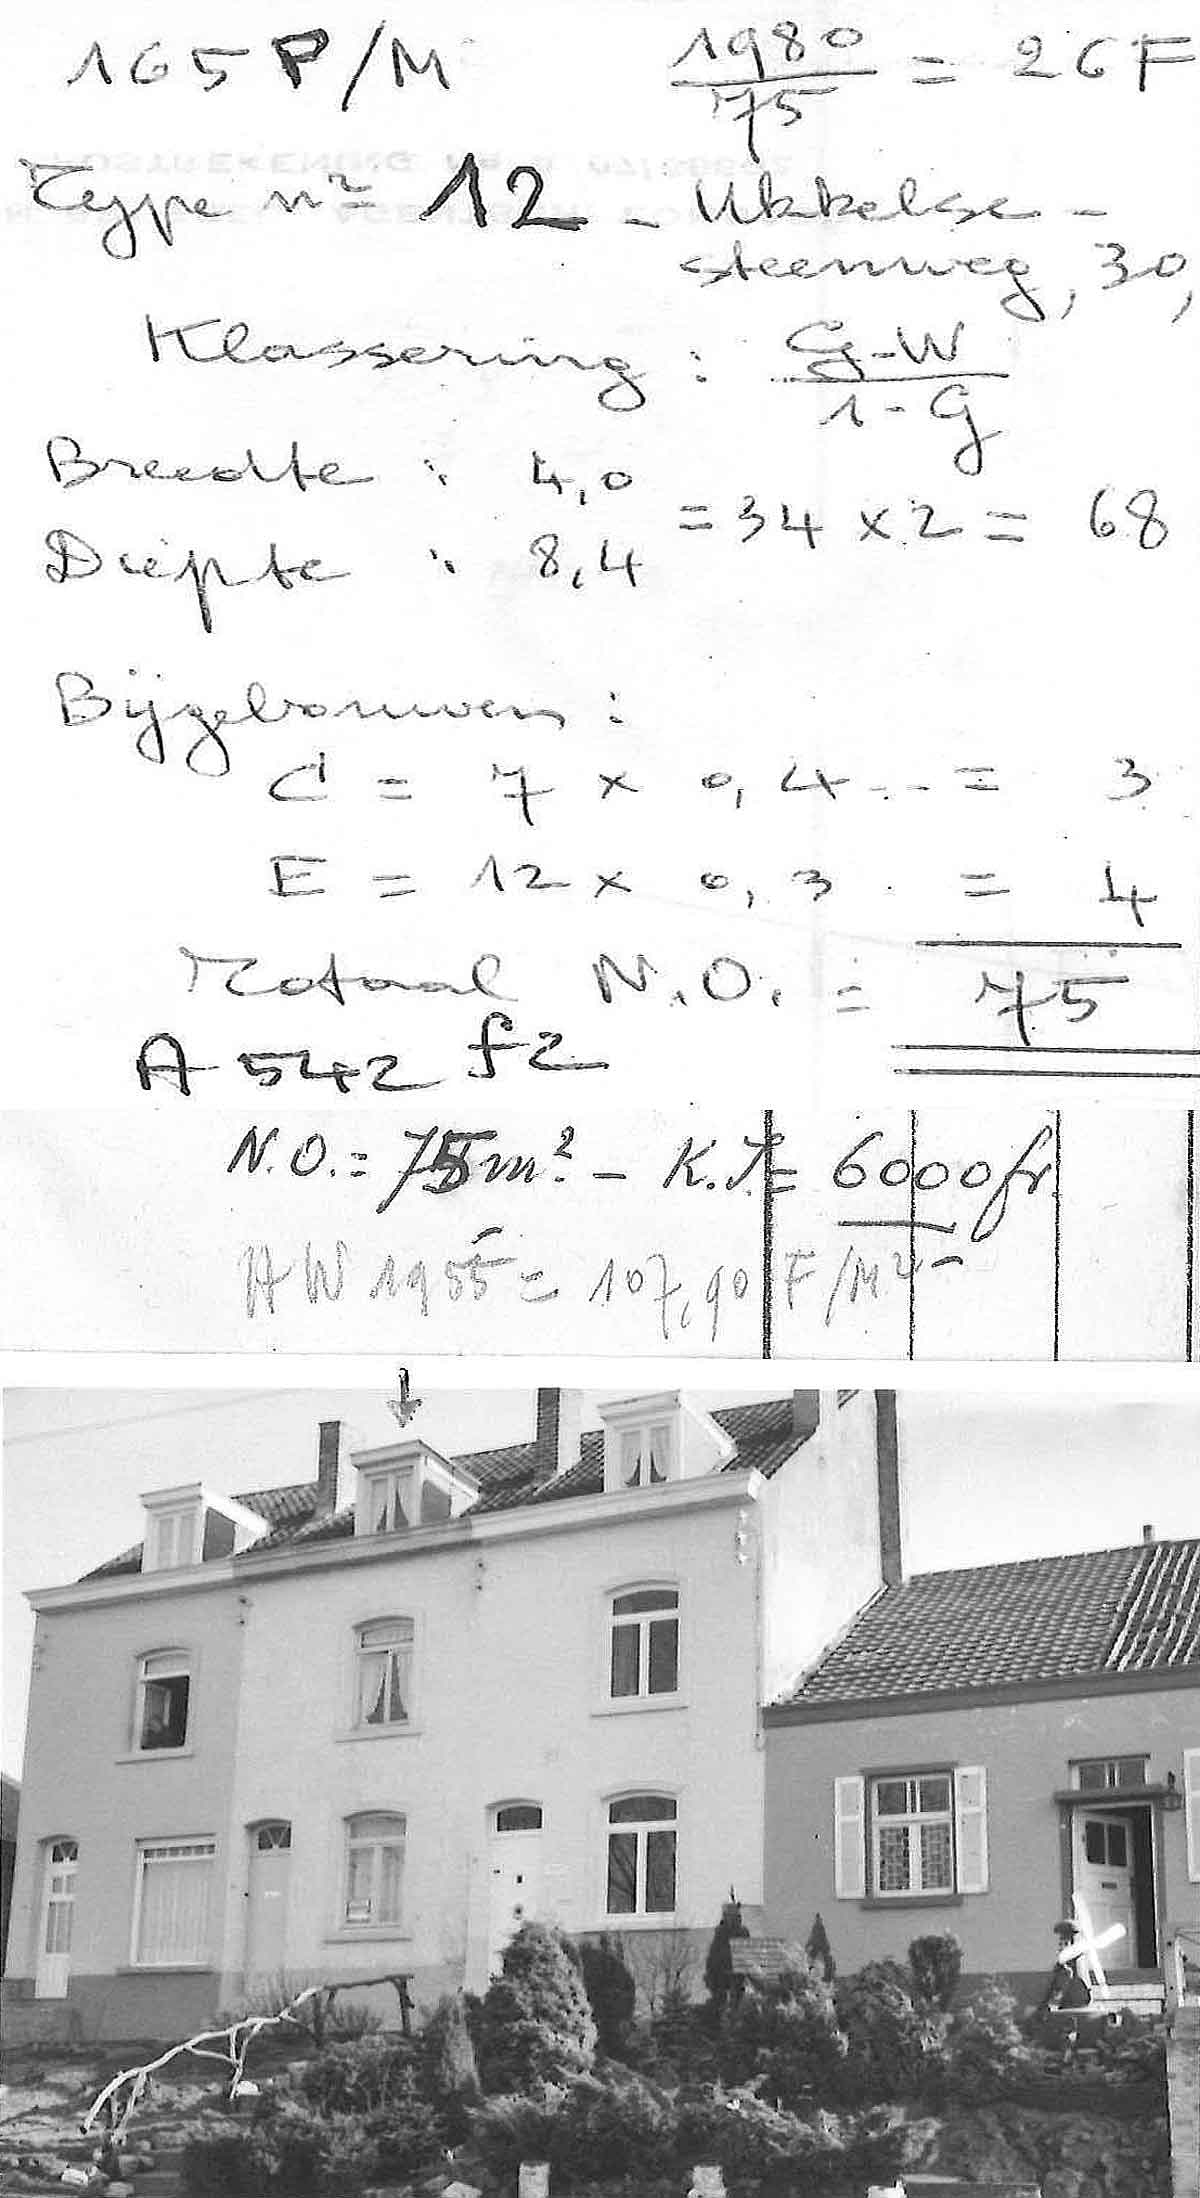 165 P/M 1980/75 = 26 F
Type nº 12 - Ukkelse-
steenweg, 30,
Klassering : G-W/1-G
Breedte : 4,0
= 34 x 2 = 68
Diepte : 8,4
Bijgebouwen :
C = 7 x 0,4 = 3
E = 12 x 0,3 = 4
Totaal N.O. = 75
A 542 f2
N.O. = 75 m² - K.I. = 6000 fr.
HW 1955 = 107,90 F/M² -